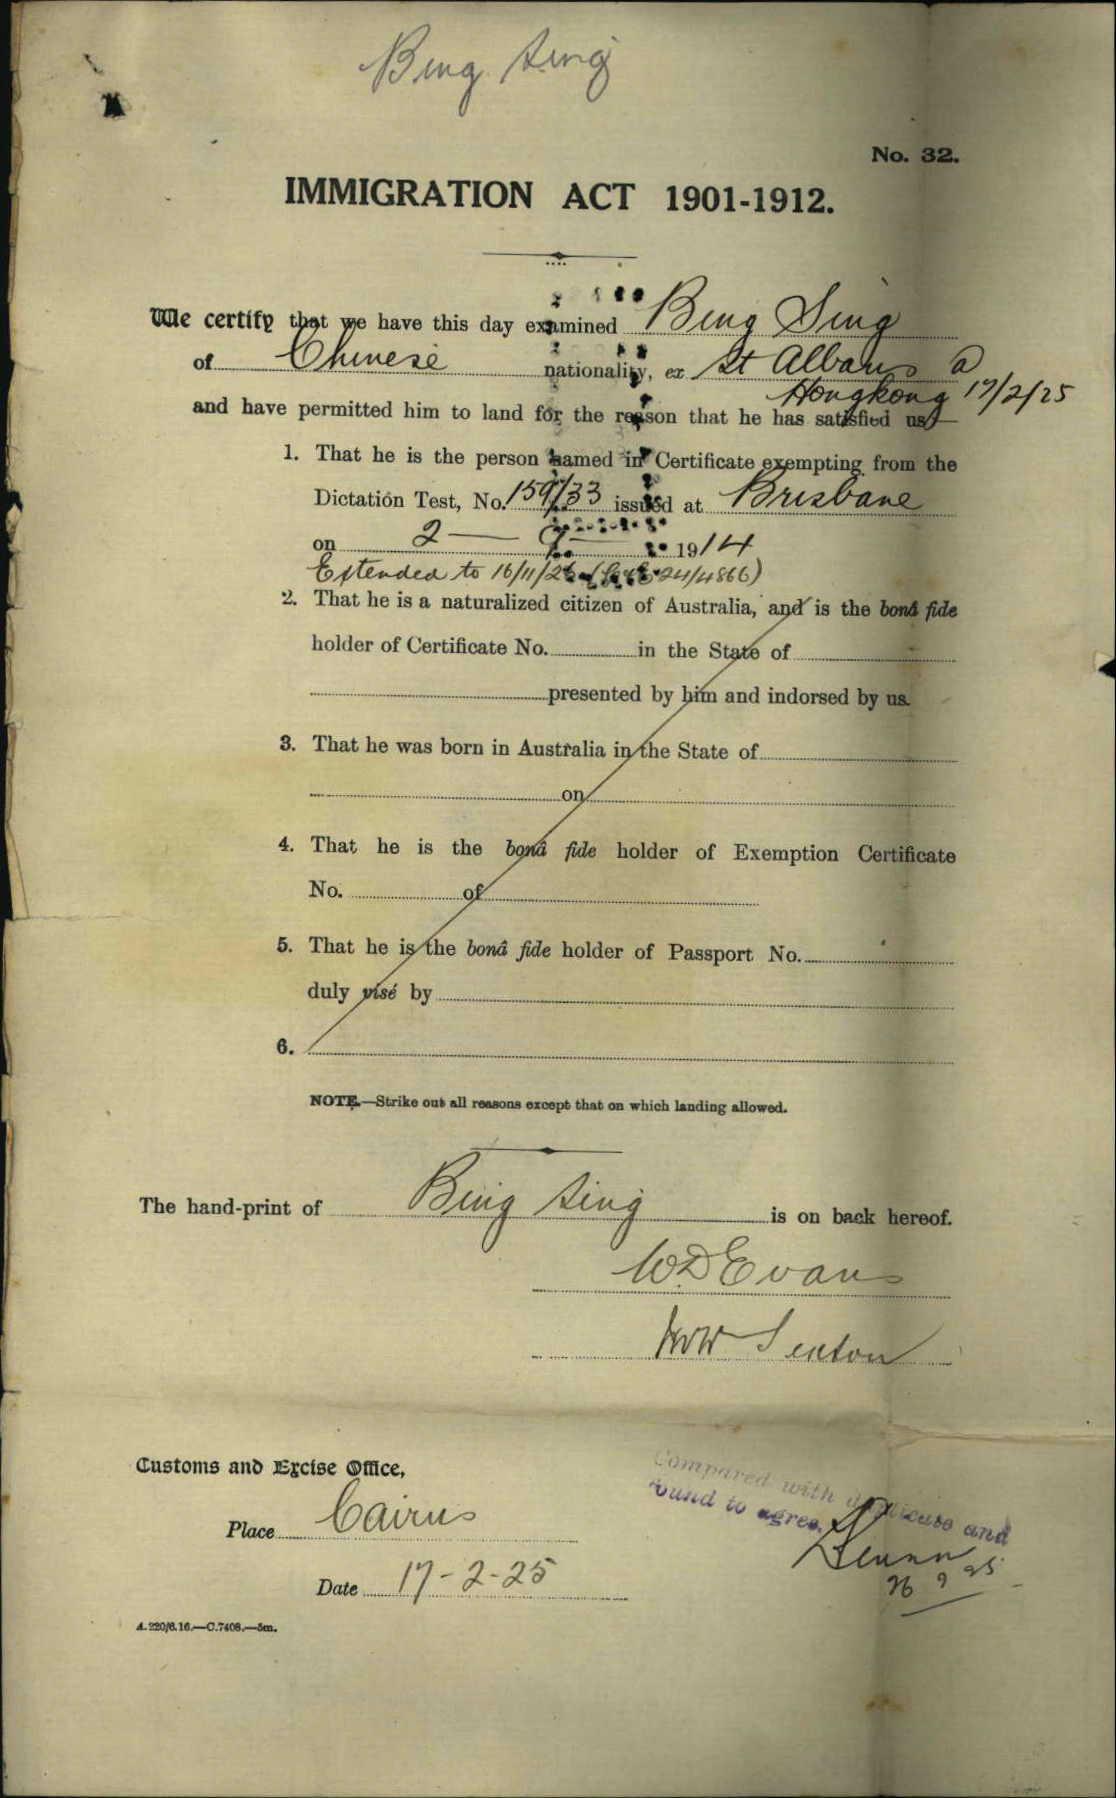 Bing Sing
No. 32.
IMMIGRATION ACT 1901-1912.
We certify that we have this day examined Bing Sing
of Chinese nationality, ex St Albans
Hongkong 17/2/25
and have permitted him to land for the reason that he has satisfied us—
1. That he is the person named in Certificate exempting from the
Dictation Test, No. 159/33 issued at Brisbane
on 2 — 9 — 1914
Extended to 16/11/26 24/4866)
2. That he is a naturalized citizen of Australia, and is the bonâ fide
holder of Certificate No. in the State of
presented by him and indorsed by us.
3. That he was born in Australia in the State of
on
4. That he is the bonâ fide holder of Exemption Certificate
No. of
5. That he is the bonâ fide holder of Passport No.
duly visé by
6.
NOTE.—Strike out all reasons except that on which landing allowed.
The hand-print of Bing Sing is on back hereof.
W.D Evans
Sexton
Customs and Excise Office,
Place Cairns
Date 17-2-25
Compared with duplicate and
found to agree.
A.220/6.16.—C.7408.—5m.